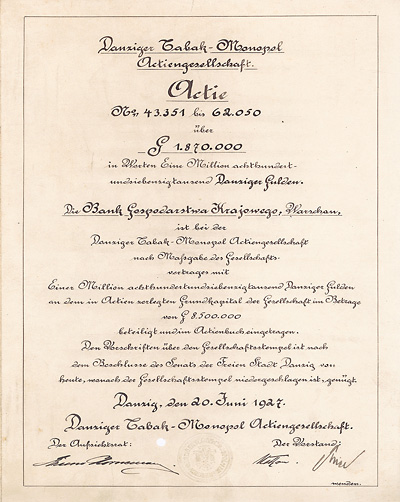 Danziger Tabak-Monopol
Actiengesellschaft.
Actie
Nr. 43.351 bis 62.050
über
G 1.870.000
in Worten Eine Million achthundert-
undsiebenzigtausend Danziger Gulden.
Die Bank Gospodarstwa Krajowego, Warschau,
ist bei der
Danziger Tabak-Monopol Actiengesellschaft
nach Maßgabe des Gesellschafts-
vertrages mit
Einer Million achthundertundsiebenzigtausend Danziger Gulden
an dem in Actien zerlegten Grundkapital der Gesellschaft im Betrage
von G 8.500.000
beteiligt und im Actienbuch eingetragen.
Den Vorschriften über den Gesellschaftsstempel ist nach
dem Beschlusse des Senats der Freien Stadt Danzig von
heute, wonach der Gesellschaftsstempel niedergeschlagen ist, genügt.
Danzig, den 20. Juni 1927.
Danziger Tabak-Monopol Actiengesellschaft.
Der Aufsichtsrat: Der Vorstand: